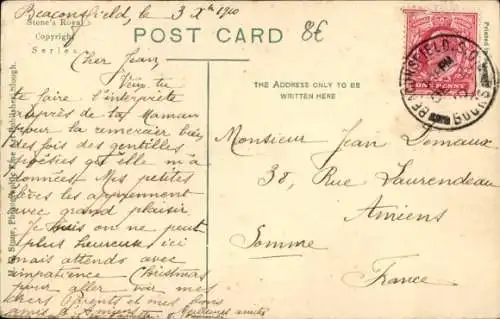 Beaconsfield, le 3 Xbre 1910
Stone's Royal
Copyright
Series.
POST CARD
8€
Printed in
Cher Jean
Veux-tu
te faire l'interprète
auprès de ta Maman
pour la remercier bien
des fois des gentilles
poésies qu'elle m'a
données. Mes petites
élèves les apprennent
avec grand plaisir.
Je suis on ne peut
plus heureuse ici
mais attends avec
impatience Christmas
pour aller voir mes
chers Parents et mes bons
amis d'Amiens. Meilleures amitiés
THE ADDRESS ONLY TO BE
WRITTEN HERE
BEACONSFIELD S.O.
BUCKS
ONE PENNY
Monsieur Jean Domeaux
38, Rue Laurendeau
Amiens
Somme
France
Stone, Photographic Fine Art Publisher, Slough.